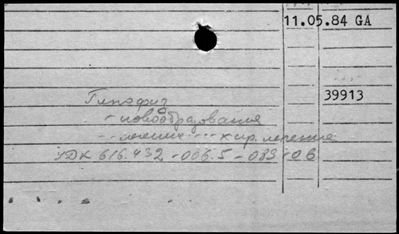 11.05.84 GA
39913
Гипофиз
- новообразования
- лечение - - - хир. лечение
УДК 616.432 - 006.5 - 089 + 06